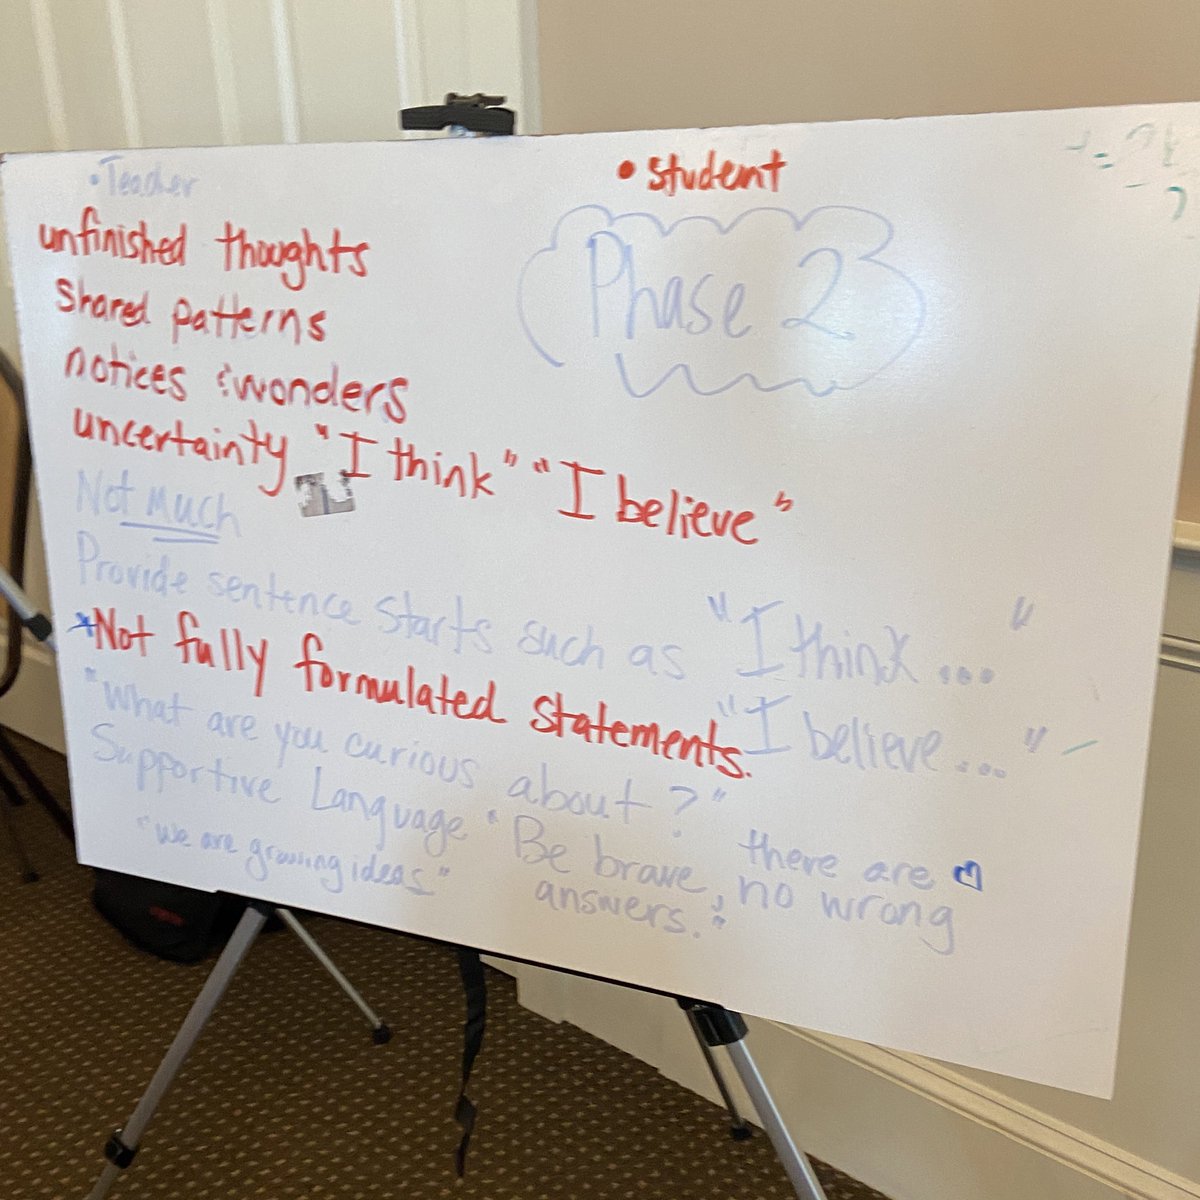 • Teacher
• Student
Phase 2
unfinished thoughts
shared patterns
notices & wonders
uncertainty "I think" "I believe"
Not much
Provide sentence starts such as "I think..."
*Not fully formulated statements.
"I believe..."
"What are you curious about?"
Supportive Language "Be brave, there are
no wrong
answers.
"we are growing ideas"